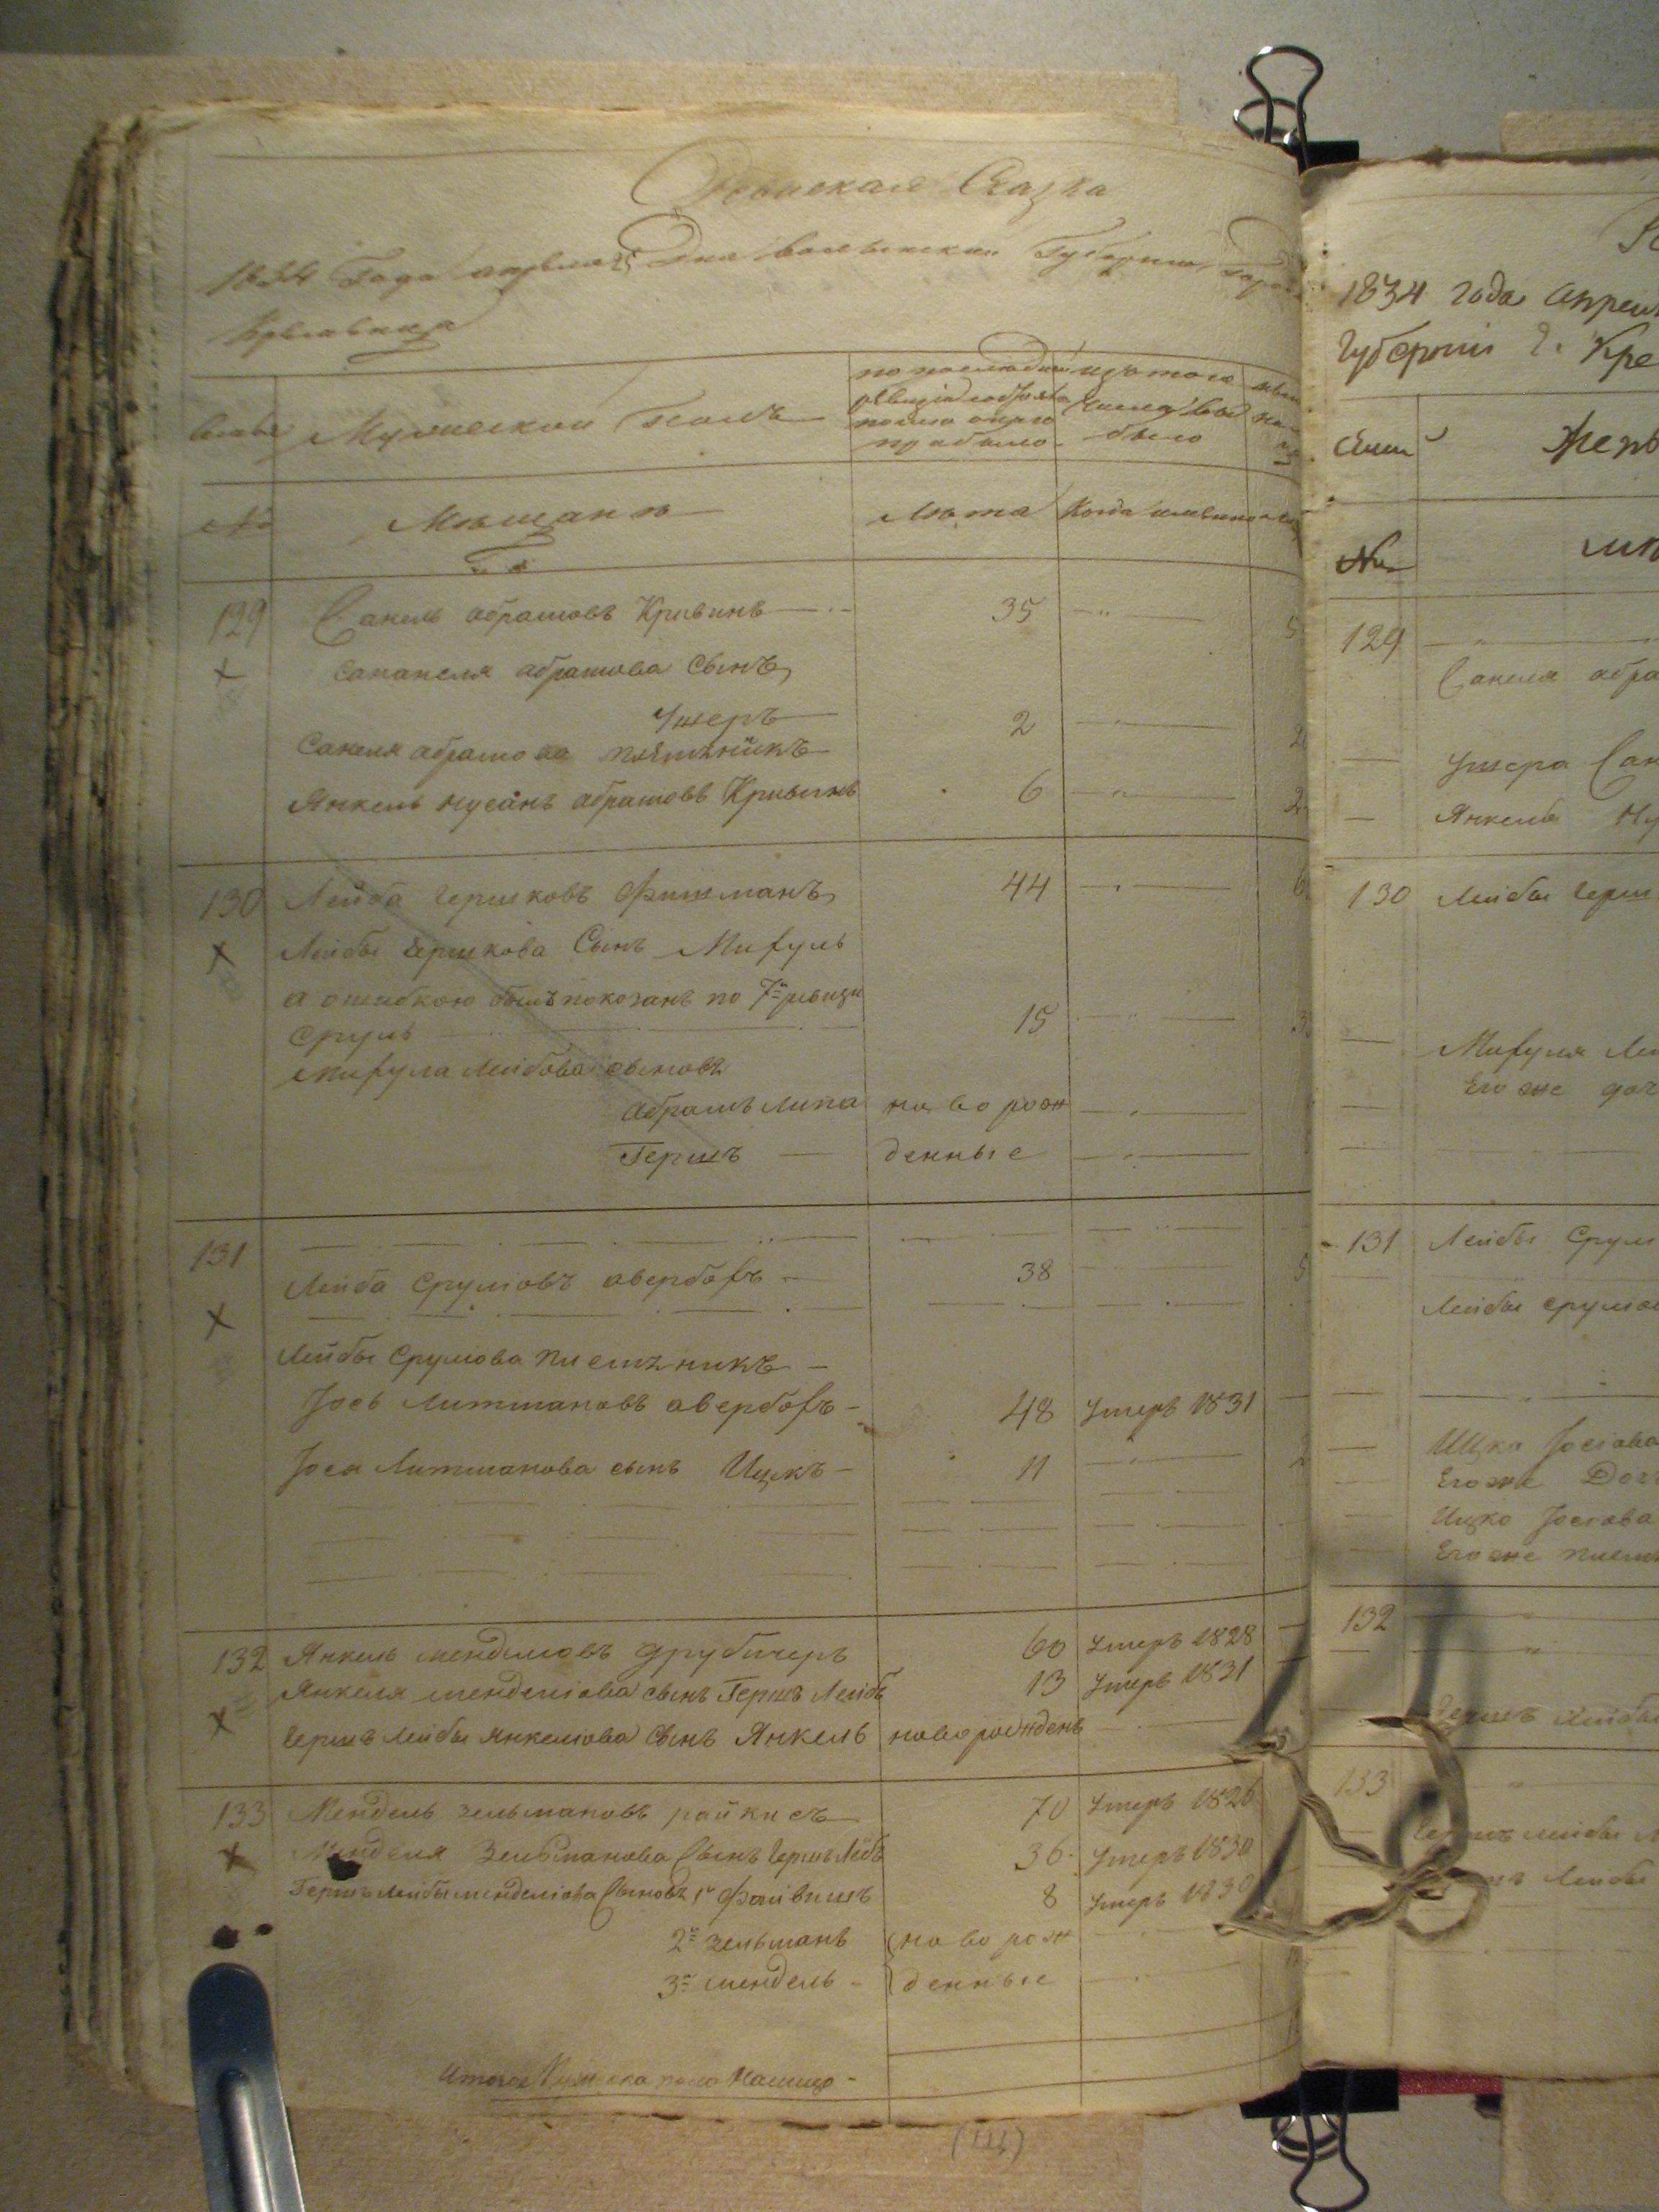 Ревизская Сказка
1834 Года апреля 25 Дня Волынской Губернии Горо
Кременца
Семьи
Мужескои Полъ
по последней
ревизіи состояло
после оной
прибыло
изъ того
числа вы
было
№
Мещане
Лета
Когда именно
129 Санель абрамовъ Кривинъ 35
Санеля абрамова Сынъ
Ушеръ 2
Санеля абрамова племянникъ
Янкель нусанъ абрамовъ Кривинъ 6
130 Лейба Гершковъ Фишманъ 44
Лейбы Гершкова Сынъ
а ошибкою былъ показанъ по 7й ревизи
Сруль 15
Лейбова сыновъ
Абрамъ Липа новорож
Гершъ денные
131
Лейба Сруліовъ авербахъ 38
Лейбы Сруліова племянникъ
Іось Литмановъ авербахъ 48 Умеръ 1831
Іося Литманова сынъ Ицкъ 11
132 Янкель менделіовъ 60 Умеръ 1828
Янкеля менделіова сынъ Гершъ Лейбъ 13 Умеръ 1831
Гершъ Лейбы Янкеліова Сынъ Янкель новорожденъ
133 Мендель Зельмановъ райкисъ 70 Умеръ 1826
Менделя Зельманова Сынъ Гершъ Лейбъ 36 Умеръ 1830
Гершъ Лейбы менделіова Сыновъ 1й Файвишъ 8 Умеръ 1830
2й Зельманъ новорож
3й мендель денные
Итого Мужеска пола Налицо
1834 года Апрел
Губерніи г. Кре
Семьи
Жен
№
129
Санеля абра
Ушера Сан
Янкеля Ну
130 Лейбы Герш
Его же доч
131 Лейбы Срул
Лейбы сруліо
Ицка Іосіова
Его же Доч
Ицко Іосіова
Его же племя
132
Гершъ Лейбы
133
Гершъ Лейбы М
Лейбы